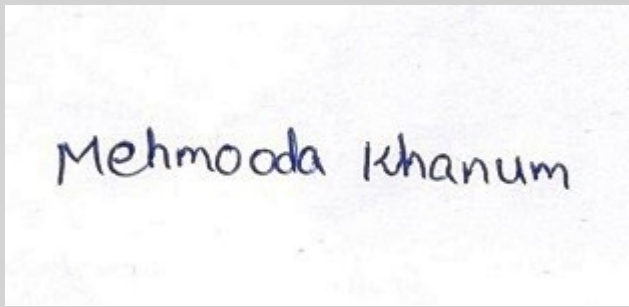 Mehmooda Khanum